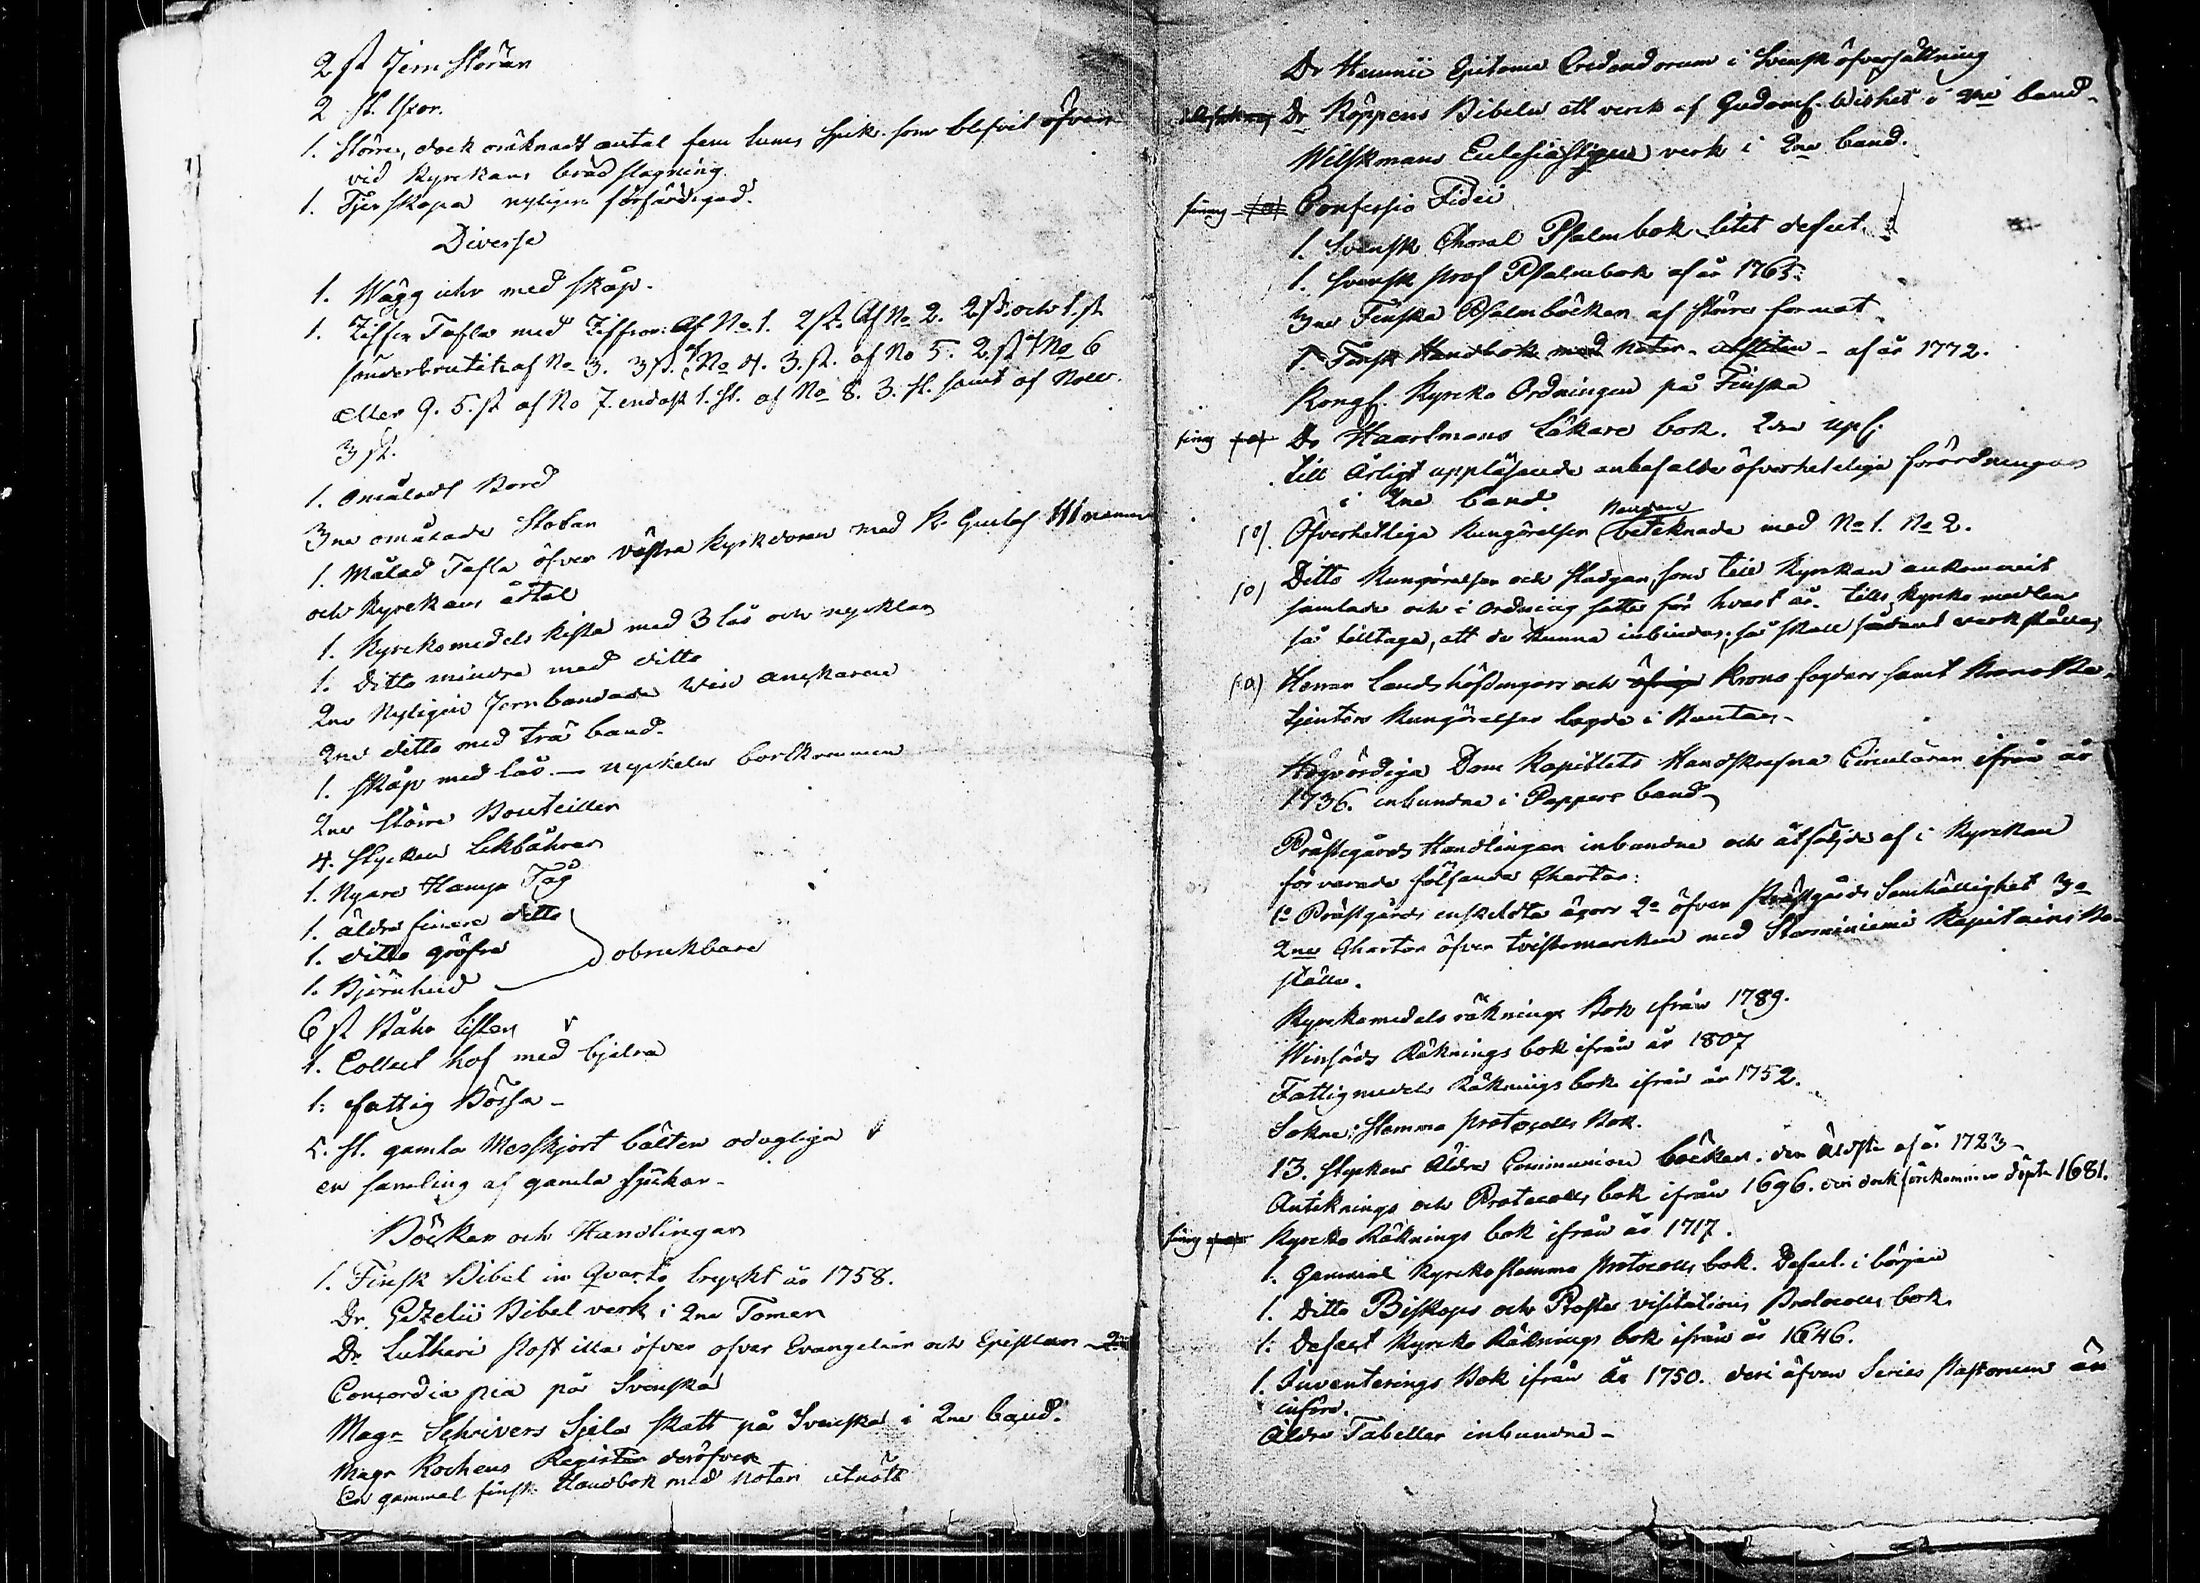 2 st Jern Störar
2 st. Spor.
1. Större, dock oräknadt antal fem tums spik. som blefvit öfver
vid Kyrckans brädslagning.
1. Tjer skopa nyligen förfärdigad.
Diverse
1. Wägg uhr med skåp.
1. Ziffer Tafla med Ziffror: Af No 1. 2 st. Af No 2. 2 st. och 1. st
sönderbrutit. af No 3. 3 st. af No 4. 3. st. af No 5. 2 st af No 6
eller 9. 5. st af No 7. endast 1. st. af No 8. 3. st. samt af Noll.
3 st.
1. Omåladt Bord
3ne omålade Stolar
1. Målad Tafla öfver västra Kyrkdoren med K. Gustaf III namn
och Kyrckans årtal
1. Kyrckomedels kista med 3 lås och nycklar
1. Ditto mindre med ditto
2ne Nyligen Jernbandade Win anckaren
2ne ditto med trä band.
1. Skåp med lås. — nyckelen bortkommen
2ne större Bouteiller
4. Stycken Likbåhrar
1. Nyare Hampe Tåg
1. äldre finare ditto
1. ditto gröfre
1. Björnhud
obrukbare
6 st Båhr lister
1. Collect hof med bjelra
1. fattig Bössa -
5. st. gamla Messkjort bälten odugliga
en samling af gamla spikar -
Böcker och Handlingar
1. Finsk Bibel in Quarto tryckt år 1758.
Dr. Gezelii Bibel verk i 2ne Tomer
Dr Lutheri Postilla öfver ofver Evangelier och Epistlar
Concordia pia på Svenska
Magr Schrivers Sjela skatt på Svenska i 2ne band.
Magr Kochens Register deröfver
En gammal finsk Handbok med Noter utnött
Dr Hemmii Epitome Credendorum i Svensk öfversättning
Dr Köppens Bibeln ett verck af Gudomel. Wishet i 2ne band.
Wilskmans Eclesiastique verk i 2ne band.
Confessio Fidei
1. Svensk Choral Psalmbok litet defect.
1. Svensk prof Psalmbok af år 1765.
3ne Finska Psalmböcker af större format
1. Finsk Handbok med Noter - utsliten - af år 1772.
Kongl. Kyrcko Ordningen på Finska
Dr Haartmans Läkare bok. 2dra upl.
Till Årligt uppläsande anbefalde öfverhetelige förordningar
i 2ne band.
(o). Öfverhetliga Kungörelser Bundtar beteknade med No 1. No 2.
(o) Ditto Kungörelser och Stadgar, som till Kyrckan ankommit
samlade och i Ordning satte för hvart år. tills Kyrko medlen
så tilltaga, att de kunna inbindas; så skall sådant verkställas
(o) Herrar Landshöfdingars och öfrige Krono fogdars samt Kronobe-
tjenters Kungörelser lagde i Buntar -
Högvördiga Dom Kapitlets Handskrefna Circulärer ifrån år
1736. inbundne i Pappers band
Prästegårds Handlingar inbundne och åtföljde af i Kyrckan
förvarade följande Chartor:
1o Prästgårds enskildta ägor 2o öfver Prästgårds Samfällighet 3o
2ne Chartor öfver tvistemarcken med Storniniemi Kapitains Bo-
ställe.
Kyrckomedels räknings Bok ifrån 1789.
Winsäds Räknings bok ifrån år 1807
Fattigmedels Räknings bok ifrån år 1752.
Sokne: Stämmo protocolls Bok.
13. Stycken Äldre Communion böcker: den äldste af år 1723 -
Antecknings och Protocolls bok ifrån 1696. deri dock förekommer döpte 1681.
Kyrcko Räknings bok ifrån år 1717.
1. Gammal Kyrckostämmo Protocolls bok. Defect. i början
1. Ditto Biskops och Prostes visitations Protocolls bok
1. Defect Kyrcko Räknings bok ifrån år 1646.
1. Inventerings Bok ifrån år 1750. deri äfven Series Pastorum är
införd.
Äldre Tabeller inbundne -